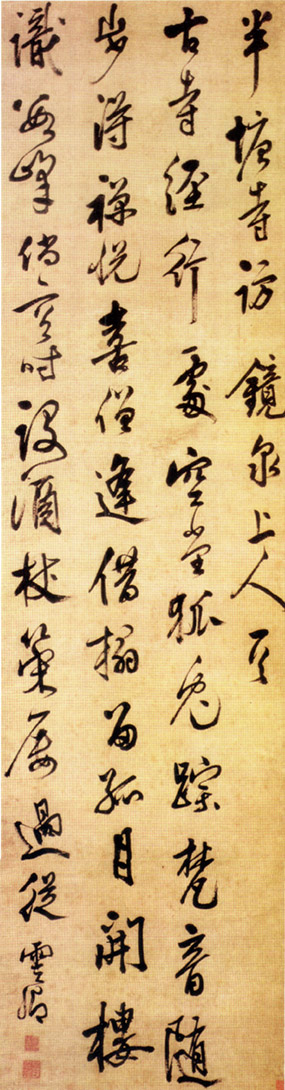 半塘寺訪鏡泉上人
古寺經行處空堂狐兔踪梵音隨
步得禪悅喜僧逢借榻留孤月開樓
識數峰倘容時設酒杖策屢過從雲卿